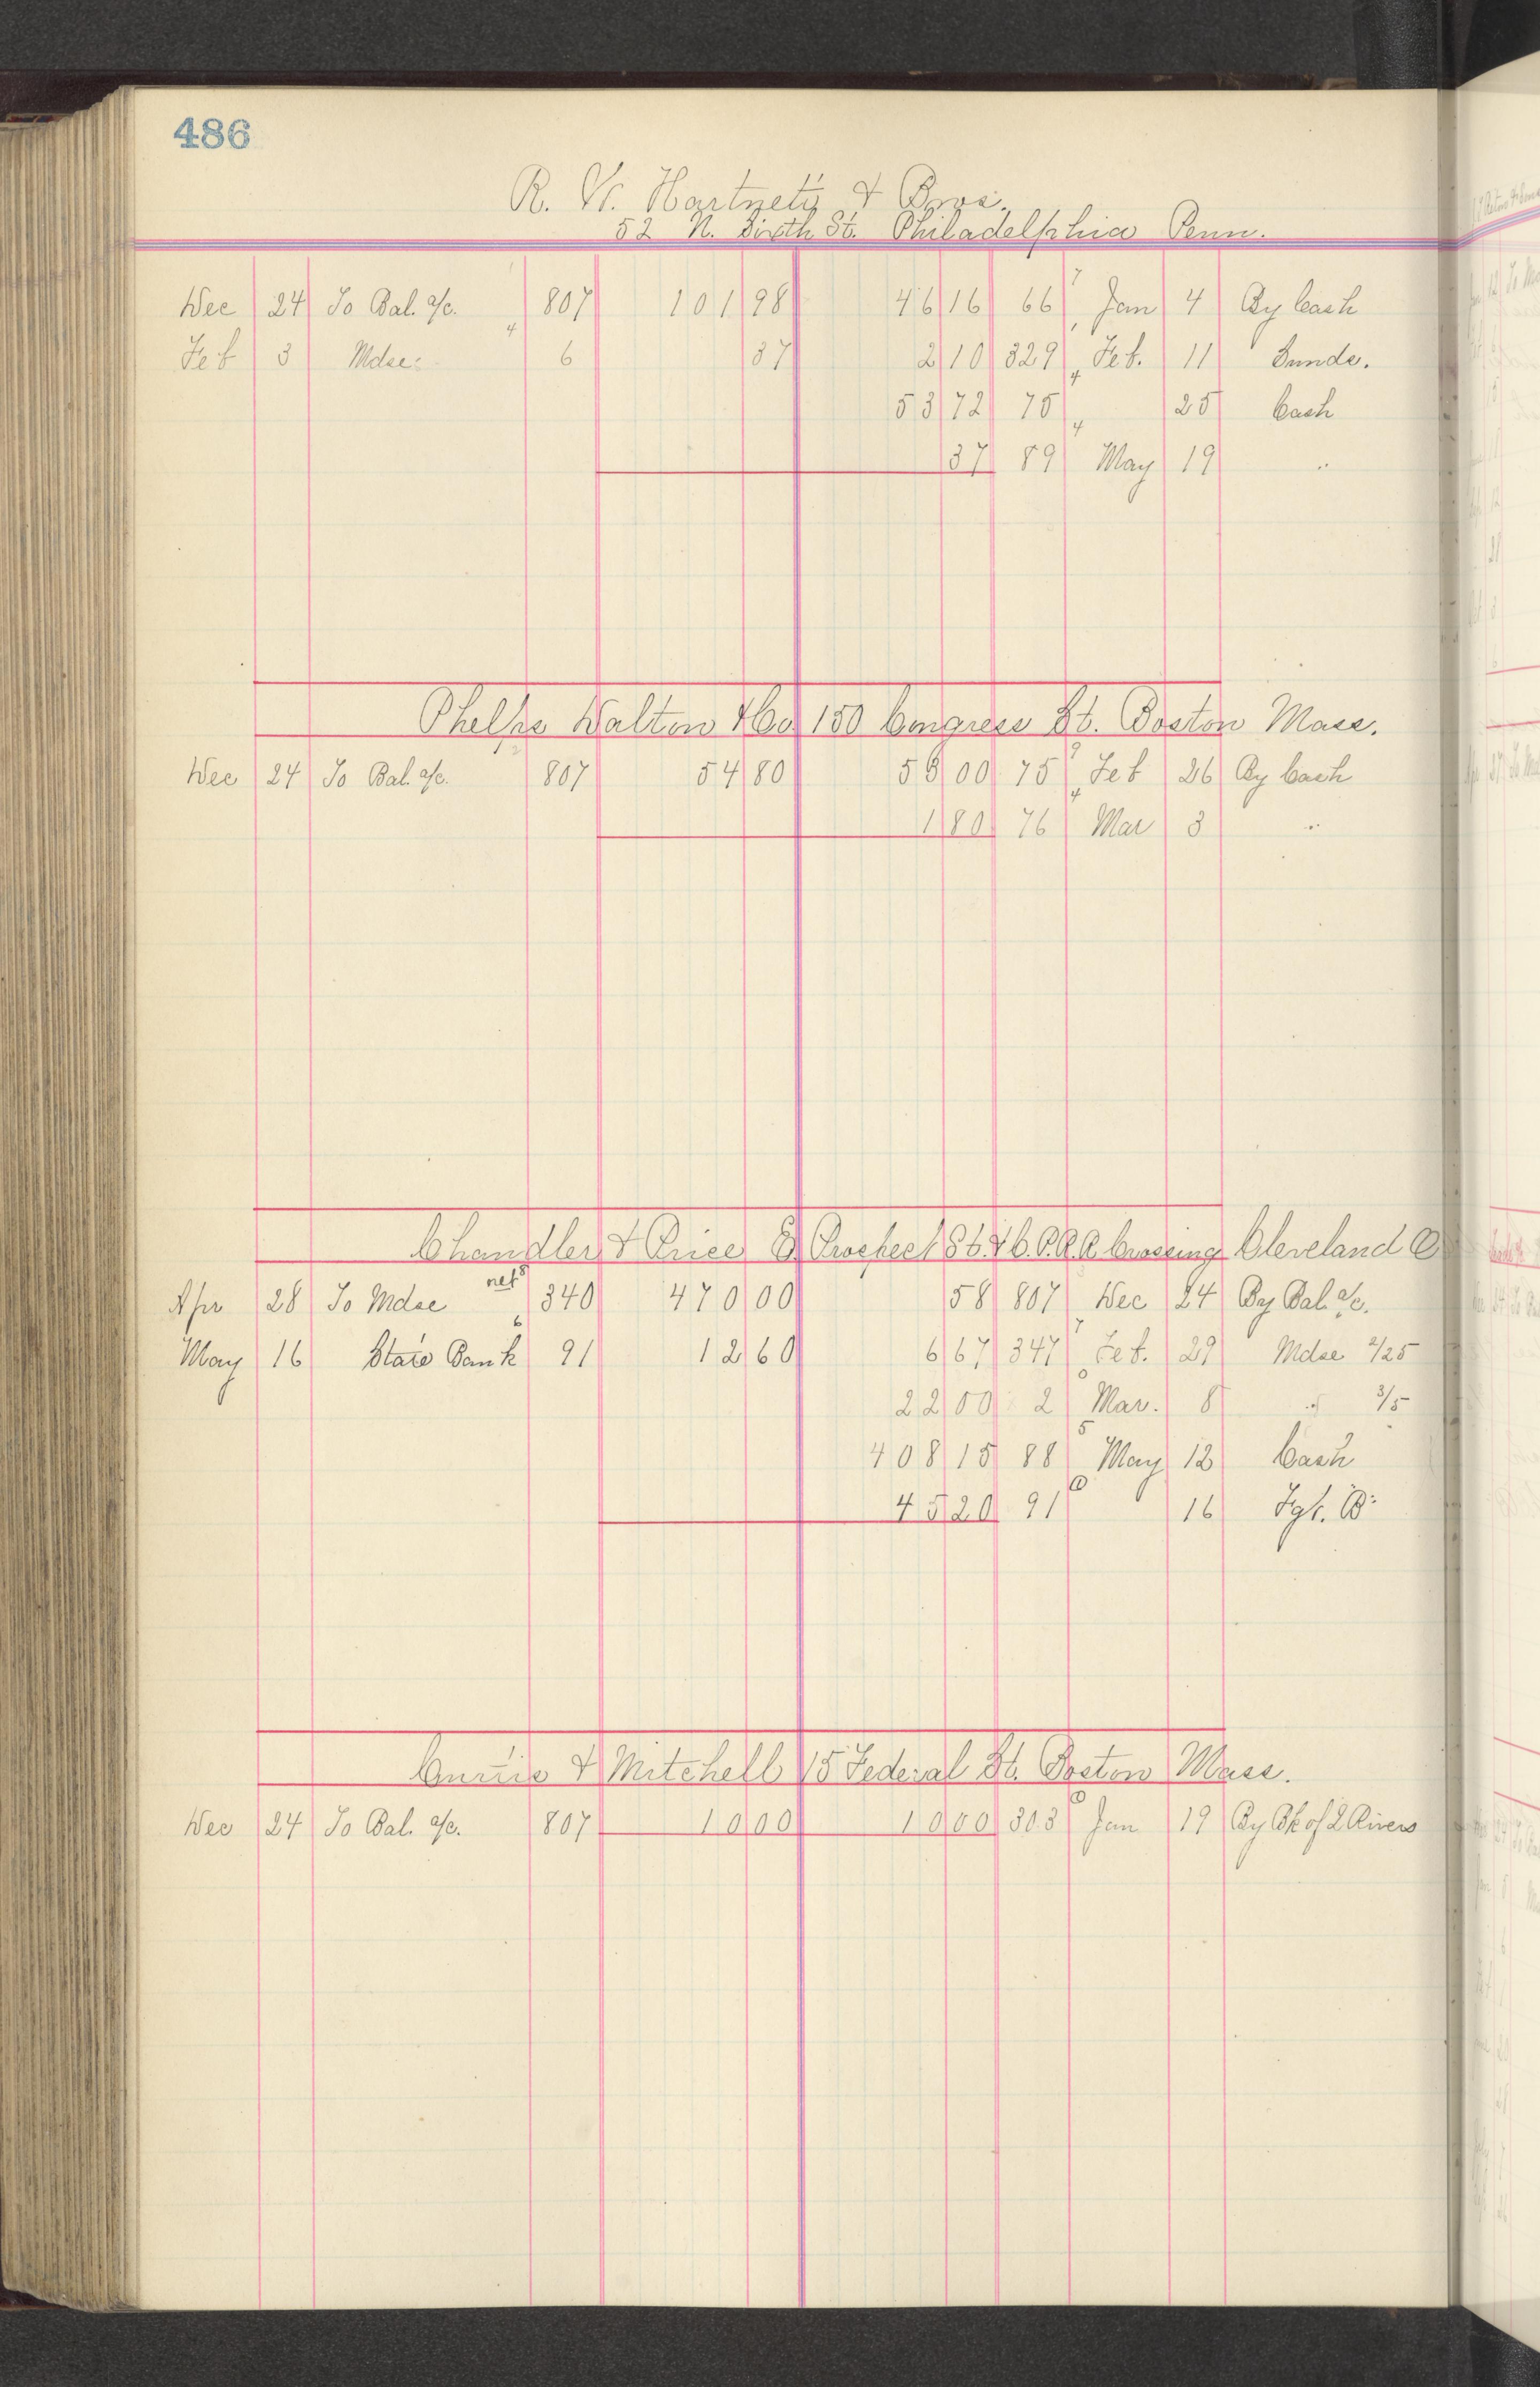 486
R. W. Hartnett & Bros.
52 N. Sixth St. Philadelphia Penn.
Dec 24 To Bal. a/c. 807 101 98 46 16 66 Jan 4 By Cash
Feb 3 Mdse. 6 37 2 10 329 Feb. 11 Sunds.
53 72 75 25 Cash
37 89 May 19 "
Phelps Dalton & Co 150 Congress St. Boston Mass.
Dec 24 To Bal. a/c. 807 54 80 53 00 75 Feb 26 By Cash
1 80 76 Mar 3 "
Chandler & Price Prospect St & C.P.R.R. Crossing Cleveland O
Apr 28 To Mdse net 340 470 00 58 807 Dec 24 By Bal. a/c.
May 16 State Bank 91 12 60 6 67 347 Feb. 29 Mdse 2/25
22 00 2 Mar. 8 " 3/5
408 15 88 May 12 Cash
45 20 91 16 Fgt. B.
Currie & Mitchell 15 Federal St. Boston Mass.
Dec 24 To Bal. a/c. 807 10 00 10 00 303 Jan 19 By Bk of 2 Rivers